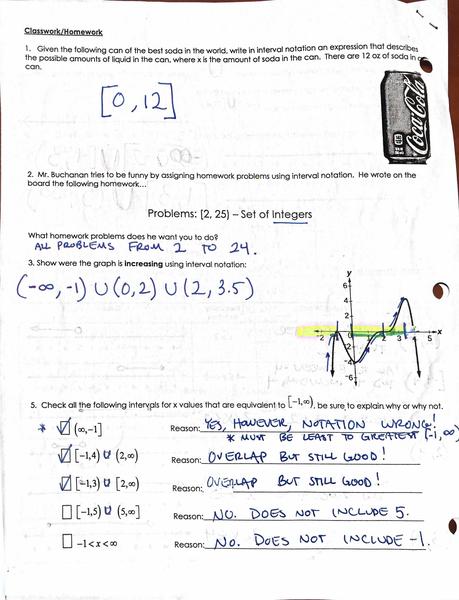 Classwork/Homework
1. Given the following can of the best soda in the world, write in interval notation an expression that describes
the possible amounts of liquid in the can, where x is the amount of soda in the can. There are 12 oz of soda in a
can.
[0, 12]
Coca-Cola
2. Mr. Buchanan tries to be funny by assigning homework problems using interval notation. He wrote on the
board the following homework...
Problems: [2, 25) – Set of Integers
What homework problems does he want you to do?
ALL PROBLEMS FROM 2 TO 24.
3. Show were the graph is increasing using interval notation:
(-∞, -1) ∪ (0, 2) ∪ (2, 3.5)
y
6
4
2
-2 1 0 1 2 3 4 5 x
-2
-4
-6
5. Check all the following intervals for x values that are equivalent to [-1,∞), be sure to explain why or why not.
* ☑ (∞,-1] Reason: YES, HOWEVER, NOTATION WRONG!
* MUST BE LEAST TO GREATEST (-1, ∞)
☑ [-1,4) ∪ (2,∞) Reason: OVERLAP BUT STILL GOOD!
☑ [-1,3) ∪ [2,∞) Reason: OVERLAP BUT STILL GOOD!
☐ [-1,5) ∪ (5,∞) Reason: NO. DOES NOT INCLUDE 5.
☐ -1 < x < ∞ Reason: NO. DOES NOT INCLUDE -1.